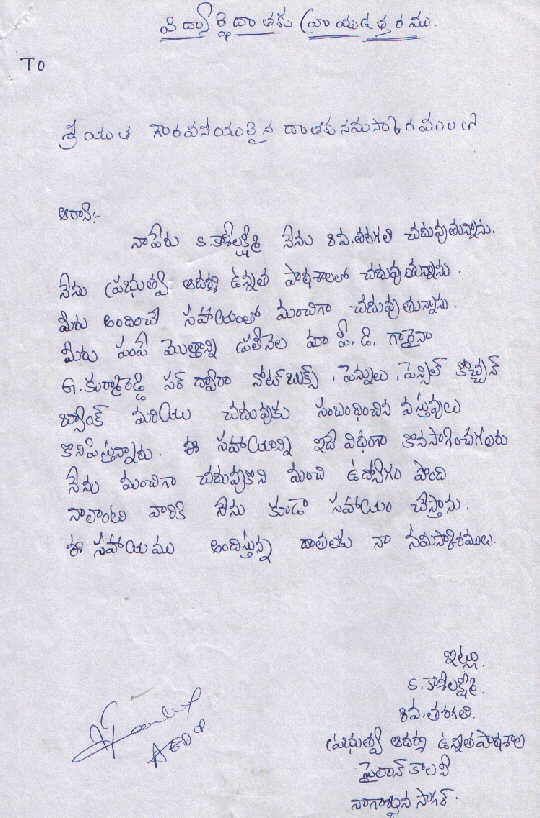 విద్యార్థిదాతకు వ్రాయుడ ర్థరము.
To
శ్రీయుత గౌరవనీయులైన దాతకు నమస్కారములు
అర్యా:-
నాపేరు S. కాశీలక్ష్మి నేను 8వ.తరగతి చదువుతున్నాను.
నేను ప్రభుత్వ ఆదర్శ ఉన్నత పాఠశాలలో చదువుతున్నాను.
మీరు అందించే సహాయంలో మంచిగా చదువుతున్నాను.
మీరు పంపే మొత్తాన్ని ప్రతినెల మా పీ.డి. గారైనా
G.కుర్మారెడ్డి సర్ ద్వారా నోట్‌బుక్స్, పెన్నులు, పెన్సిల్ కొశ్చన్
బ్యాంక్ మరియు చదువుకు సంబంధించిన వస్తువులు
కొనిపెత్తన్నారు. ఈ సహాయాన్ని ఇదే విధంగా కొనసాగించగలరు
నేను మంచిగా చదువుకొని మంచి ఉద్యోగం పొంది
నాలాంటి వారికి నేను కూడా సహాయం చేస్తాను.
ఈ సహాయము అందిస్తున్న దాతలకు నా నమస్కారములు.
ఇట్లు
S. కాశీలక్ష్మి.
8వ.తరగతి.
ప్రభుత్వ ఆదర్శ ఉన్నతపాఠశాల
పైలాన్ కాలనీ
నాగార్జున సాగర్.